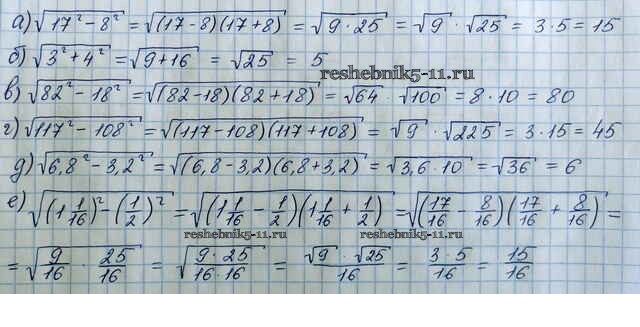 а) √(17² - 8²) = √((17 - 8)(17 + 8)) = √(9 · 25) = √9 · √25 = 3 · 5 = 15
б) √(3² + 4²) = √(9 + 16) = √25 = 5
reshebnik5-11.ru
в) √(82² - 18²) = √((82 - 18)(82 + 18)) = √64 · √100 = 8 · 10 = 80
г) √(117² - 108²) = √((117 - 108)(117 + 108)) = √9 · √225 = 3 · 15 = 45
д) √(6,8² - 3,2²) = √((6,8 - 3,2)(6,8 + 3,2)) = √(3,6 · 10) = √36 = 6
е) √((1 1/16)² - (1/2)²) = √((1 1/16 - 1/2)(1 1/16 + 1/2)) = √((17/16 - 8/16)(17/16 + 8/16)) =
reshebnik5-11.ru reshebnik5-11.ru
= √(9/16 · 25/16) = √((9 · 25)/(16 · 16)) = (√9 · √25)/16 = (3 · 5)/16 = 15/16